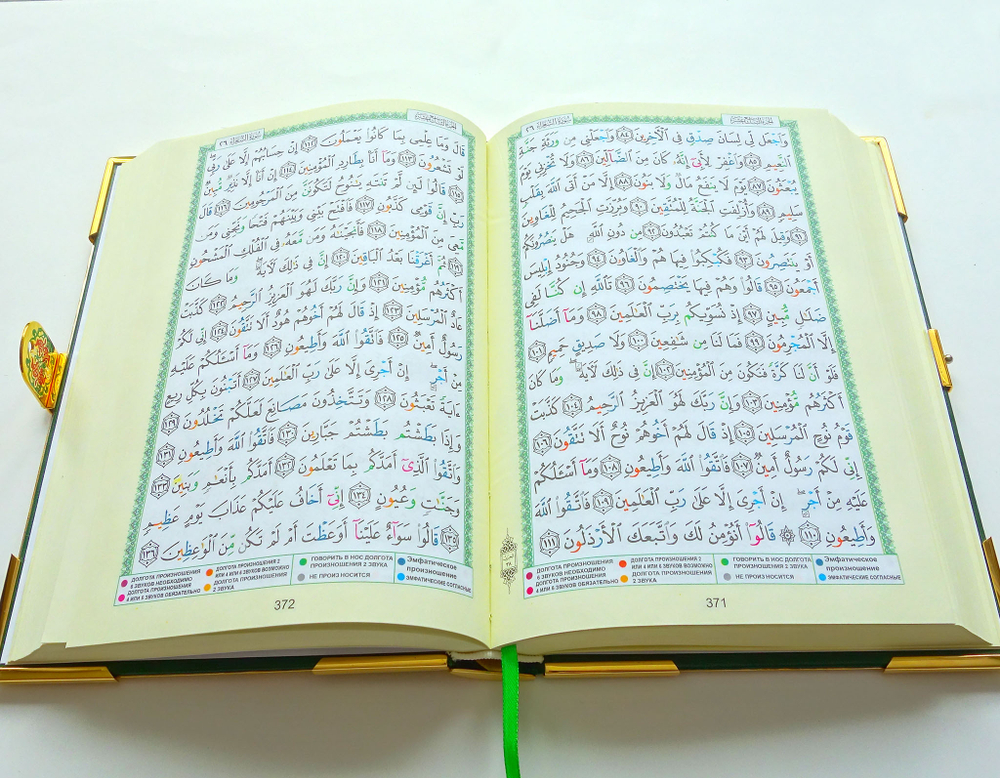 سُورَةُ الشُّعَرَاءِ ٢٦
وَاجْعَل لِّي لِسَانَ صِدْقٍ فِي الْآخِرِينَ ٨٤ وَاجْعَلْنِي مِن وَرَثَةِ جَنَّةِ
النَّعِيمِ ٨٥ وَاغْفِرْ لِأَبِي إِنَّهُ كَانَ مِنَ الضَّالِّينَ ٨٦ وَلَا تُخْزِنِي يَوْمَ
يُبْعَثُونَ ٨٧ يَوْمَ لَا يَنفَعُ مَالٌ وَلَا بَنُونَ ٨٨ إِلَّا مَنْ أَتَى اللَّهَ بِقَلْبٍ
سَلِيمٍ ٨٩ وَأُزْلِفَتِ الْجَنَّةُ لِلْمُتَّقِينَ ٩٠ وَبُرِّزَتِ الْجَحِيمُ لِلْغَاوِينَ
٩١ وَقِيلَ لَهُمْ أَيْنَ مَا كُنتُمْ تَعْبُدُونَ ٩٢ مِن دُونِ اللَّهِ هَلْ يَنصُرُونَكُمْ
أَوْ يَنتَصِرُونَ ٩٣ فَكُبْكِبُوا فِيهَا هُمْ وَالْغَاوُونَ ٩٤ وَجُنُودُ إِبْلِيسَ
أَجْمَعُونَ ٩٥ قَالُوا وَهُمْ فِيهَا يَخْتَصِمُونَ ٩٦ تَاللَّهِ إِن كُنَّا لَفِي
ضَلَالٍ مُّبِينٍ ٩٧ إِذْ نُسَوِّيكُم بِرَبِّ الْعَالَمِينَ ٩٨ وَمَا أَضَلَّنَا
إِلَّا الْمُجْرِمُونَ ٩٩ فَمَا لَنَا مِن شَافِعِينَ ١٠٠ وَلَا صَدِيقٍ حَمِيمٍ ١٠١
فَلَوْ أَنَّ لَنَا كَرَّةً فَنَكُونَ مِنَ الْمُؤْمِنِينَ ١٠٢ إِنَّ فِي ذَٰلِكَ لَآيَةً وَمَا كَانَ
أَكْثَرُهُم مُّؤْمِنِينَ ١٠٣ وَإِنَّ رَبَّكَ لَهُوَ الْعَزِيزُ الرَّحِيمُ ١٠٤ كَذَّبَتْ
قَوْمُ نُوحٍ الْمُرْسَلِينَ ١٠٥ إِذْ قَالَ لَهُمْ أَخُوهُمْ نُوحٌ أَلَا تَتَّقُونَ ١٠٦
إِنِّي لَكُمْ رَسُولٌ أَمِينٌ ١٠٧ فَاتَّقُوا اللَّهَ وَأَطِيعُونِ ١٠٨ وَمَا أَسْـَٔلُكُمْ
عَلَيْهِ مِنْ أَجْرٍ إِنْ أَجْرِيَ إِلَّا عَلَىٰ رَبِّ الْعَالَمِينَ ١٠٩ فَاتَّقُوا اللَّهَ
وَأَطِيعُونِ ١١٠ ۞ قَالُوا أَنُؤْمِنُ لَكَ وَاتَّبَعَكَ الْأَرْذَلُونَ ١١١
ДОЛГОТА ПРОИЗНОШЕНИЯ 6 ЗВУКОВ НЕОБХОДИМО
ДОЛГОТА ПРОИЗНОШЕНИЯ 4 ИЛИ 5 ЗВУКОВ ОБЯЗАТЕЛЬНО
ДОЛГОТА ПРОИЗНОШЕНИЯ 2 ИЛИ 4 ИЛИ 6 ЗВУКОВ ВОЗМОЖНО
ДОЛГОТА ПРОИЗНОШЕНИЯ 2 ЗВУКА
ГОВОРИТЬ В НОС ДОЛГОТА ПРОИЗНОШЕНИЯ 2 ЗВУКА
НЕ ПРОИЗНОСИТСЯ
Эмфатическое произношение
ЭМФАТИЧЕСКИЕ СОГЛАСНЫЕ
371
سُورَةُ الشُّعَرَاءِ ٢٦
قَالَ وَمَا عِلْمِي بِمَا كَانُوا يَعْمَلُونَ ١١٢ إِنْ حِسَابُهُمْ إِلَّا عَلَىٰ رَبِّي
لَوْ تَشْعُرُونَ ١١٣ وَمَا أَنَا بِطَارِدِ الْمُؤْمِنِينَ ١١٤ إِنْ أَنَا إِلَّا نَذِيرٌ مُّبِينٌ
١١٥ قَالُوا لَئِن لَّمْ تَنتَهِ يَانُوحُ لَتَكُونَنَّ مِنَ الْمَرْجُومِينَ ١١٦ قَالَ
رَبِّ إِنَّ قَوْمِي كَذَّبُونِ ١١٧ فَافْتَحْ بَيْنِي وَبَيْنَهُمْ فَتْحًا وَنَجِّنِي وَمَن
مَّعِيَ مِنَ الْمُؤْمِنِينَ ١١٨ فَأَنجَيْنَاهُ وَمَن مَّعَهُ فِي الْفُلْكِ الْمَشْحُونِ
١١٩ ثُمَّ أَغْرَقْنَا بَعْدُ الْبَاقِينَ ١٢٠ إِنَّ فِي ذَٰلِكَ لَآيَةً وَمَا كَانَ
أَكْثَرُهُم مُّؤْمِنِينَ ١٢١ وَإِنَّ رَبَّكَ لَهُوَ الْعَزِيزُ الرَّحِيمُ ١٢٢ كَذَّبَتْ
عَادٌ الْمُرْسَلِينَ ١٢٣ إِذْ قَالَ لَهُمْ أَخُوهُمْ هُودٌ أَلَا تَتَّقُونَ ١٢٤ إِنِّي لَكُمْ
رَسُولٌ أَمِينٌ ١٢٥ فَاتَّقُوا اللَّهَ وَأَطِيعُونِ ١٢٦ وَمَا أَسْـَٔلُكُمْ عَلَيْهِ
مِنْ أَجْرٍ إِنْ أَجْرِيَ إِلَّا عَلَىٰ رَبِّ الْعَالَمِينَ ١٢٧ أَتَبْنُونَ بِكُلِّ رِيعٍ
ءَايَةً تَعْبَثُونَ ١٢٨ وَتَتَّخِذُونَ مَصَانِعَ لَعَلَّكُمْ تَخْلُدُونَ ١٢٩
وَإِذَا بَطَشْتُم بَطَشْتُمْ جَبَّارِينَ ١٣٠ فَاتَّقُوا اللَّهَ وَأَطِيعُونِ ١٣١
وَاتَّقُوا الَّذِي أَمَدَّكُم بِمَا تَعْلَمُونَ ١٣٢ أَمَدَّكُم بِأَنْعَامٍ وَبَنِينَ ١٣٣
وَجَنَّاتٍ وَعُيُونٍ ١٣٤ إِنِّي أَخَافُ عَلَيْكُمْ عَذَابَ يَوْمٍ عَظِيمٍ
١٣٥ قَالُوا سَوَاءٌ عَلَيْنَا أَوَعَظْتَ أَمْ لَمْ تَكُن مِّنَ الْوَاعِظِينَ ١٣٦
ДОЛГОТА ПРОИЗНОШЕНИЯ 6 ЗВУКОВ НЕОБХОДИМО
ДОЛГОТА ПРОИЗНОШЕНИЯ 4 ИЛИ 5 ЗВУКОВ ОБЯЗАТЕЛЬНО
ДОЛГОТА ПРОИЗНОШЕНИЯ 2 ИЛИ 4 ИЛИ 6 ЗВУКОВ ВОЗМОЖНО
ДОЛГОТА ПРОИЗНОШЕНИЯ 2 ЗВУКА
ГОВОРИТЬ В НОС ДОЛГОТА ПРОИЗНОШЕНИЯ 2 ЗВУКА
НЕ ПРОИЗНОСИТСЯ
Эмфатическое произношение
ЭМФАТИЧЕСКИЕ СОГЛАСНЫЕ
372